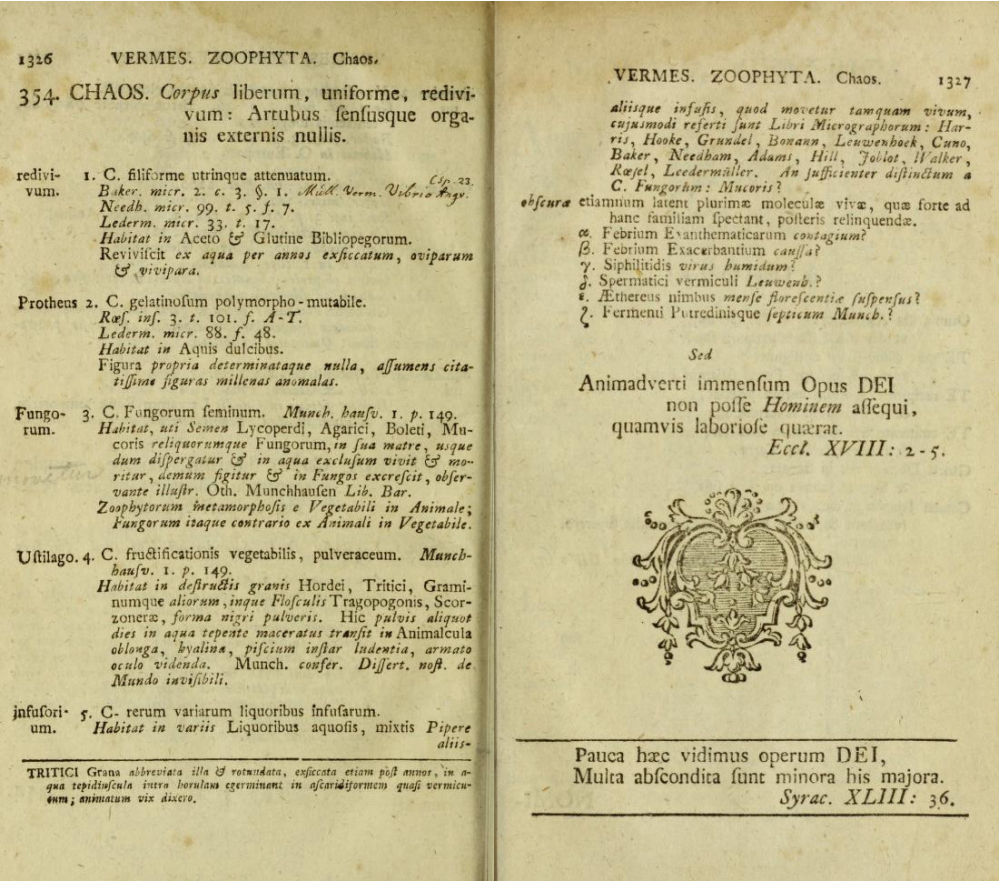 1326 VERMES. ZOOPHYTA. Chaos.
354. CHAOS. Corpus liberum, uniforme, redivi-
vum: Artubus ſenſusque orga-
nis externis nullis.
redivi- 1. C. filiforme utrinque attenuatum.
vum. Baker. micr. 2. c. 3. §. 1. Müll. Verm. Vibrio Angv.
Needh. micr. 99. t. 5. f. 7.
Lederm. micr. 33. t. 17.
Habitat in Aceto & Glutine Bibliopegorum.
Reviviſcit ex aqua per annos exſiccatum, oviparum
& vivipara.
Protheus 2. C. gelatinoſum polymorpho-mutabile.
Rœſ. inſ. 3. t. 101. f. A-T.
Lederm. micr. 88. f. 48.
Habitat in Aquis dulcibus.
Figura propria determinataque nulla, aſſumens cita-
tiſſime figuras millenas anomalas.
Fungo- 3. C. Fungorum ſeminum. Munch. hauſv. 1. p. 149.
rum. Habitat, uti Semen Lycoperdi, Agarici, Boleti, Mu-
coris reliquorumque Fungorum, in ſua matre, usque
dum diſpergatur & in aqua excluſum vivit & mo-
ritur, demum figitur & in Fungos excreſcit, obſer-
vante illuſtr. Oth. Munchhauſen Lib. Bar.
Zoophytorum metamorphoſis e Vegetabili in Animale;
Fungorum itaque contrario ex Animali in Vegetabile.
Uſtilago. 4. C. fructificationis vegetabilis, pulveraceum. Munch-
hauſv. 1. p. 149.
Habitat in deſtructis granis Hordei, Tritici, Grami-
numque aliorum, inque Floſculis Tragopogonis, Scor-
zoneræ, forma nigri pulveris. Hic pulvis aliquot
dies in aqua tepente maceratus tranſit in Animalcula
oblonga, hyalina, piſcium inſtar ludentia, armato
oculo videnda. Munch. confer. Diſſert. noſt. de
Mundo inviſibili.
infuſori- 5. C- rerum variarum liquoribus infuſarum.
um. Habitat in variis Liquoribus aquoſis, mixtis Pipere
aliis-
TRITICI Grana abbreviata illa & rotundata, exſiccata etiam poſt annos, in a-
qua tepidiuſcula intra horulam egerminant in aſcaridiformem quaſi vermicu-
lum; animatum vix dixero.
VERMES. ZOOPHYTA. Chaos. 1327
aliisque infuſis, quod movetur tamquam vivum,
cujusmodi referti ſunt Libri Micrographorum: Har-
ris, Hooke, Grundel, Bonann, Leuwenhoek, Cuno,
Baker, Needham, Adams, Hill, Joblot, Walker,
Rœſel, Leedermüller. An ſufficienter diſtinctum a
C. Fungorum: Mucoris?
obſcura etiamnum latent plurimæ moleculæ vivæ, quæ forte ad
hanc familiam ſpectant, poſteris relinquendæ.
α. Febrium Exanthematicarum contagium?
β. Febrium Exacerbantium cauſſa?
γ. Siphilitidis virus humidum?
δ. Spermatici vermiculi Leuwenh.?
ε. Æthereus nimbus menſe floreſcentiæ ſuſpenſus?
ζ. Fermenti Putredinisque ſepticum Munch.?
Sed
Animadverti immenſum Opus DEI
non poſſe Hominem aſſequi,
quamvis laborioſe quærat.
Eccl. XVIII: 2-5.
Pauca hæc vidimus operum DEI,
Multa abſcondita ſunt minora his majora.
Syrac. XLIII: 36.